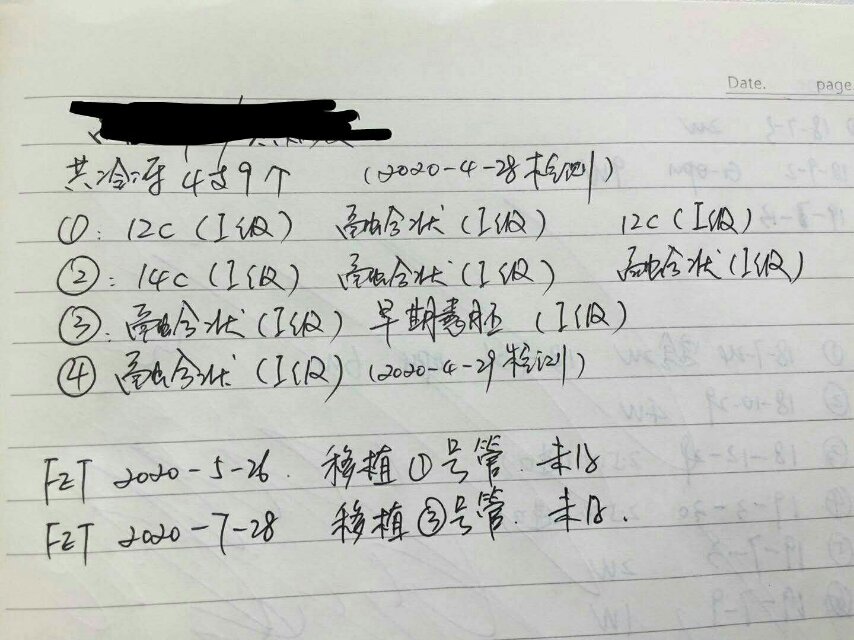 Date. page
共冷冻4支9个 (2020-4-28检测)
①: 12C (I级) 融合状 (I级) 12C (I级)
②: 14C (I级) 融合状 (I级) 融合状 (I级)
③: 融合状 (I级) 早期囊胚 (I级)
④ 融合状 (I级) (2020-4-29检测)
FET 2020-5-26. 移植①号管. 未孕
FET 2020-7-28 移植③号管. 未孕.